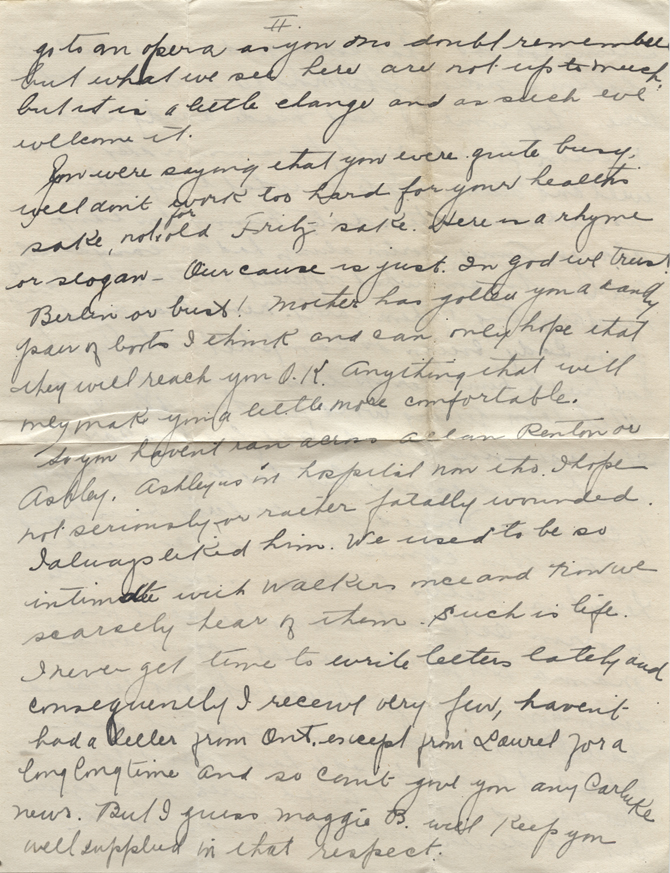 II.
go to an opera as you no doubt remember
but what we see here are not up to much,
but it is a little change and as such we
welcome it.
You were saying that you were quite busy,
well don't work too hard for your health's
sake, not for old Fritz' sake. Here is a rhyme
or slogan - Our cause is just. In god we trust
Berlin or bust! Mother has gotten you a dandy
pair of boots I think and can only hope that
they will reach you O.K. Anything that will
make you a little more comfortable.
So you haven't ran across Allan Renton or
Ashley. Ashley is in hospital now tho. I hope
not seriously or rather fatally wounded.
I always liked him. We used to be so
intimate with Walkers once and now we
scarsely hear of them. Such is life.
I never get time to write letters lately and
consequently I receive very few, haven't
had a letter from Ont. except from Laurel for a
long long time and so can't give you any Carluke
news. But I guess Maggie B. will keep you
well supplied in that respect.